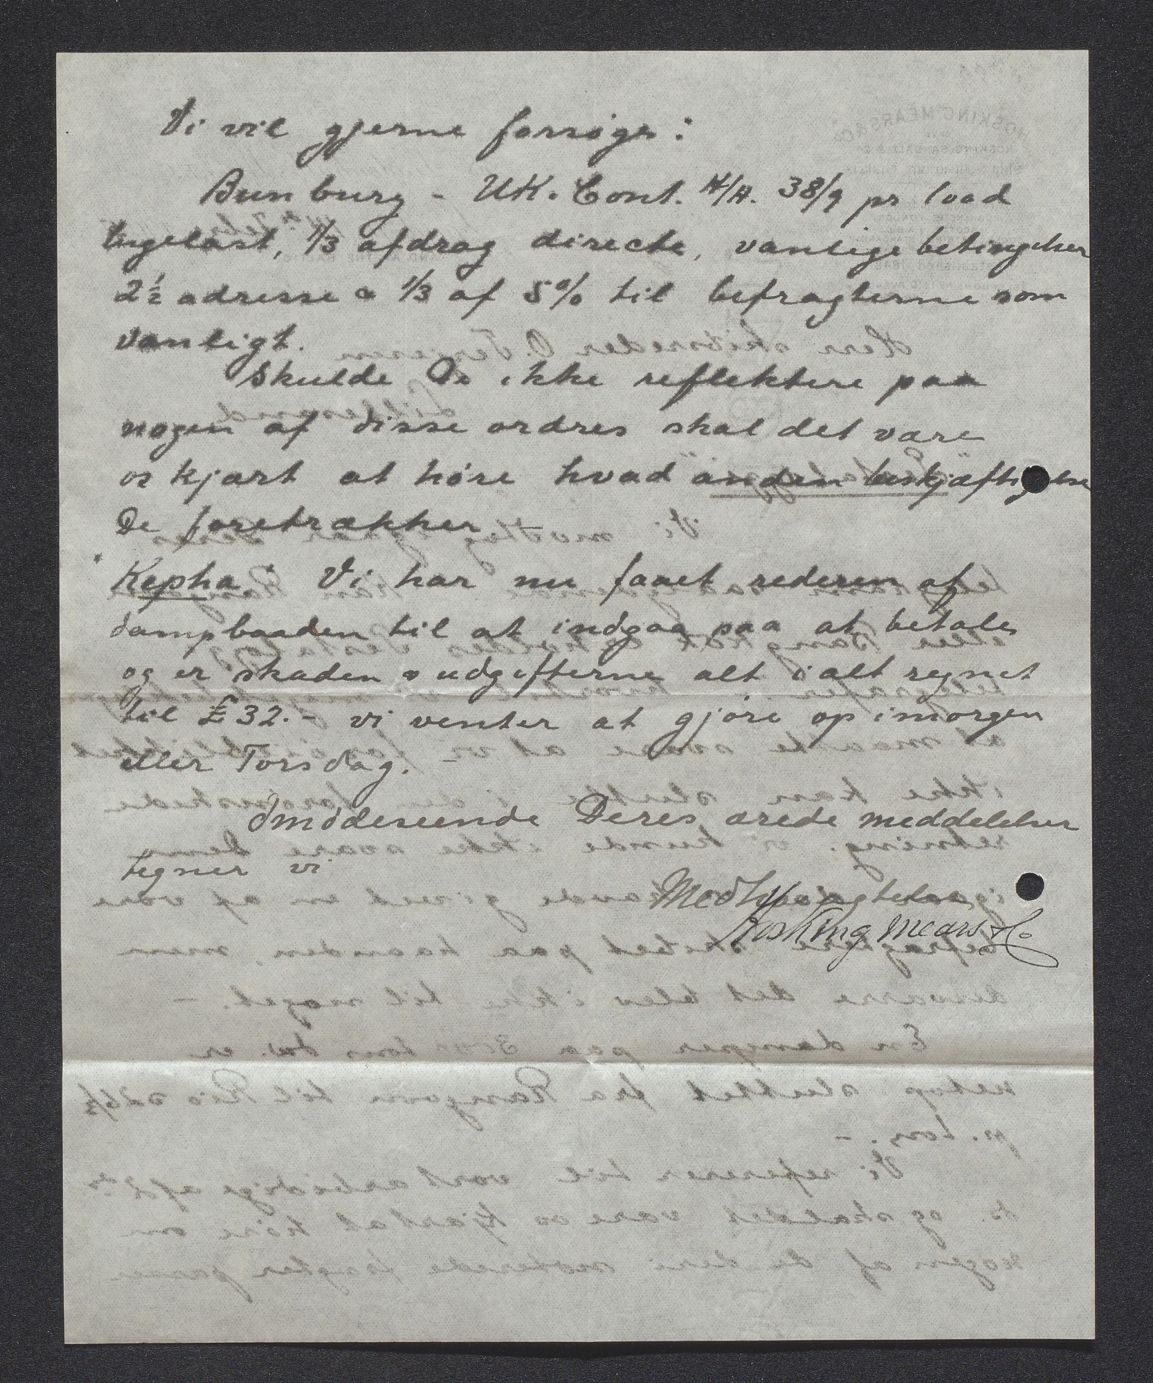 Vi vil gjerne forsøge:
Bunburg - UK. Cont. H/H. 38/9 pr load
tugelast, 1/3 afdrag directe, vanlige betingelser
2½ adresse a 1/3 af 5% til befragterne som
vanligt.
Skulde De ikke reflektere paa
nogen af disse ordres skal det være
os kjært at høre hvad anden beskjæftigelse
De foretrækker
"Kepha" Vi har nu faaet rederen af
dampbaaden til at indgaa paa at betale
og er skaden & udgifterne alt i alt regnet
til £32.- vi venter at gjøre op imorgen
eller Torsdag. -
Imødeseende Deres ærede meddelelser
tegner vi
Med Høiagtelse
Hosking Mears & Co